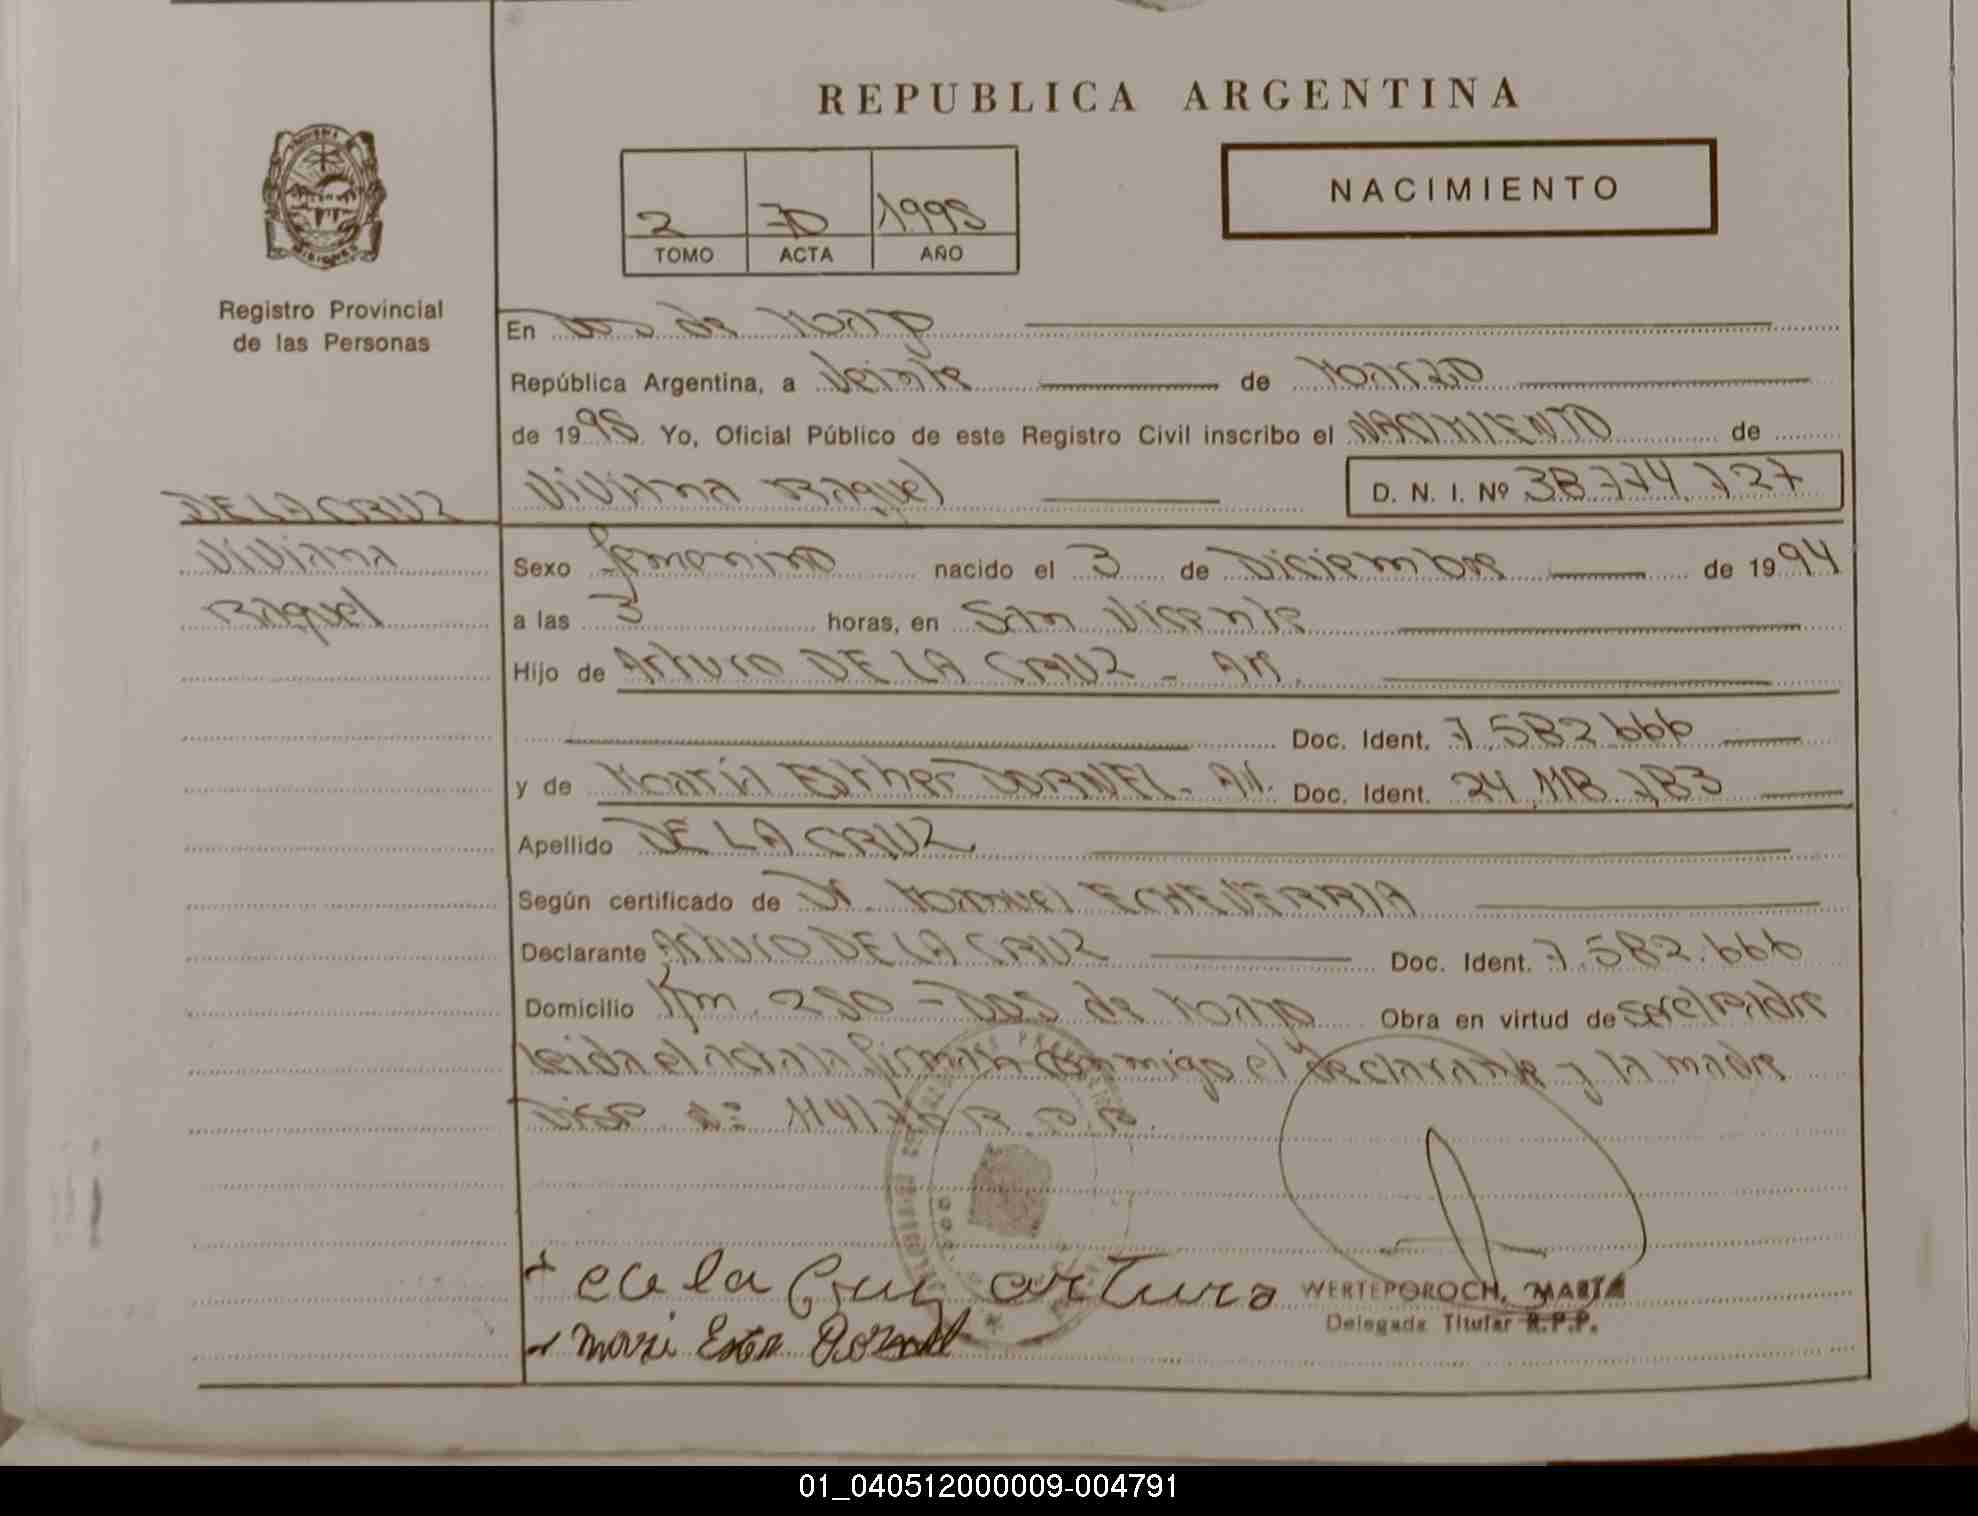 REPUBLICA ARGENTINA
NACIMIENTO
2 70 1995
TOMO ACTA AÑO
Registro Provincial
de las Personas
En Dos de Mayo
República Argentina, a Veinte de Marzo
de 1995 Yo, Oficial Público de este Registro Civil inscribo el NACIMIENTO de
Viviana Raquel D. N. I. Nº 38.774.727
DE LA CRUZ
Viviana
Raquel
Sexo femenino nacido el 3 de Diciembre de 1994
a las 3 horas, en San Vicente
Hijo de Arturo DE LA CRUZ - AR.
Doc. Ident. 7.582.666
y de María Esther DORNEL - AR. Doc. Ident. 24.118.783
Apellido DE LA CRUZ.
Según certificado de Dr. Manuel ECHEVERRIA
Declarante Arturo DE LA CRUZ Doc. Ident. 7.582.666
Domicilio Km. 250 - Dos de Mayo Obra en virtud de ser el padre
leida el acta la firman conmigo el declarante y la madre
Disp. Nº
ece la Cruz arturo
Mari Ester Dornel
WERTEPOROCH, MARTA
Delegada Titular R.P.P.
01_040512000009-004791